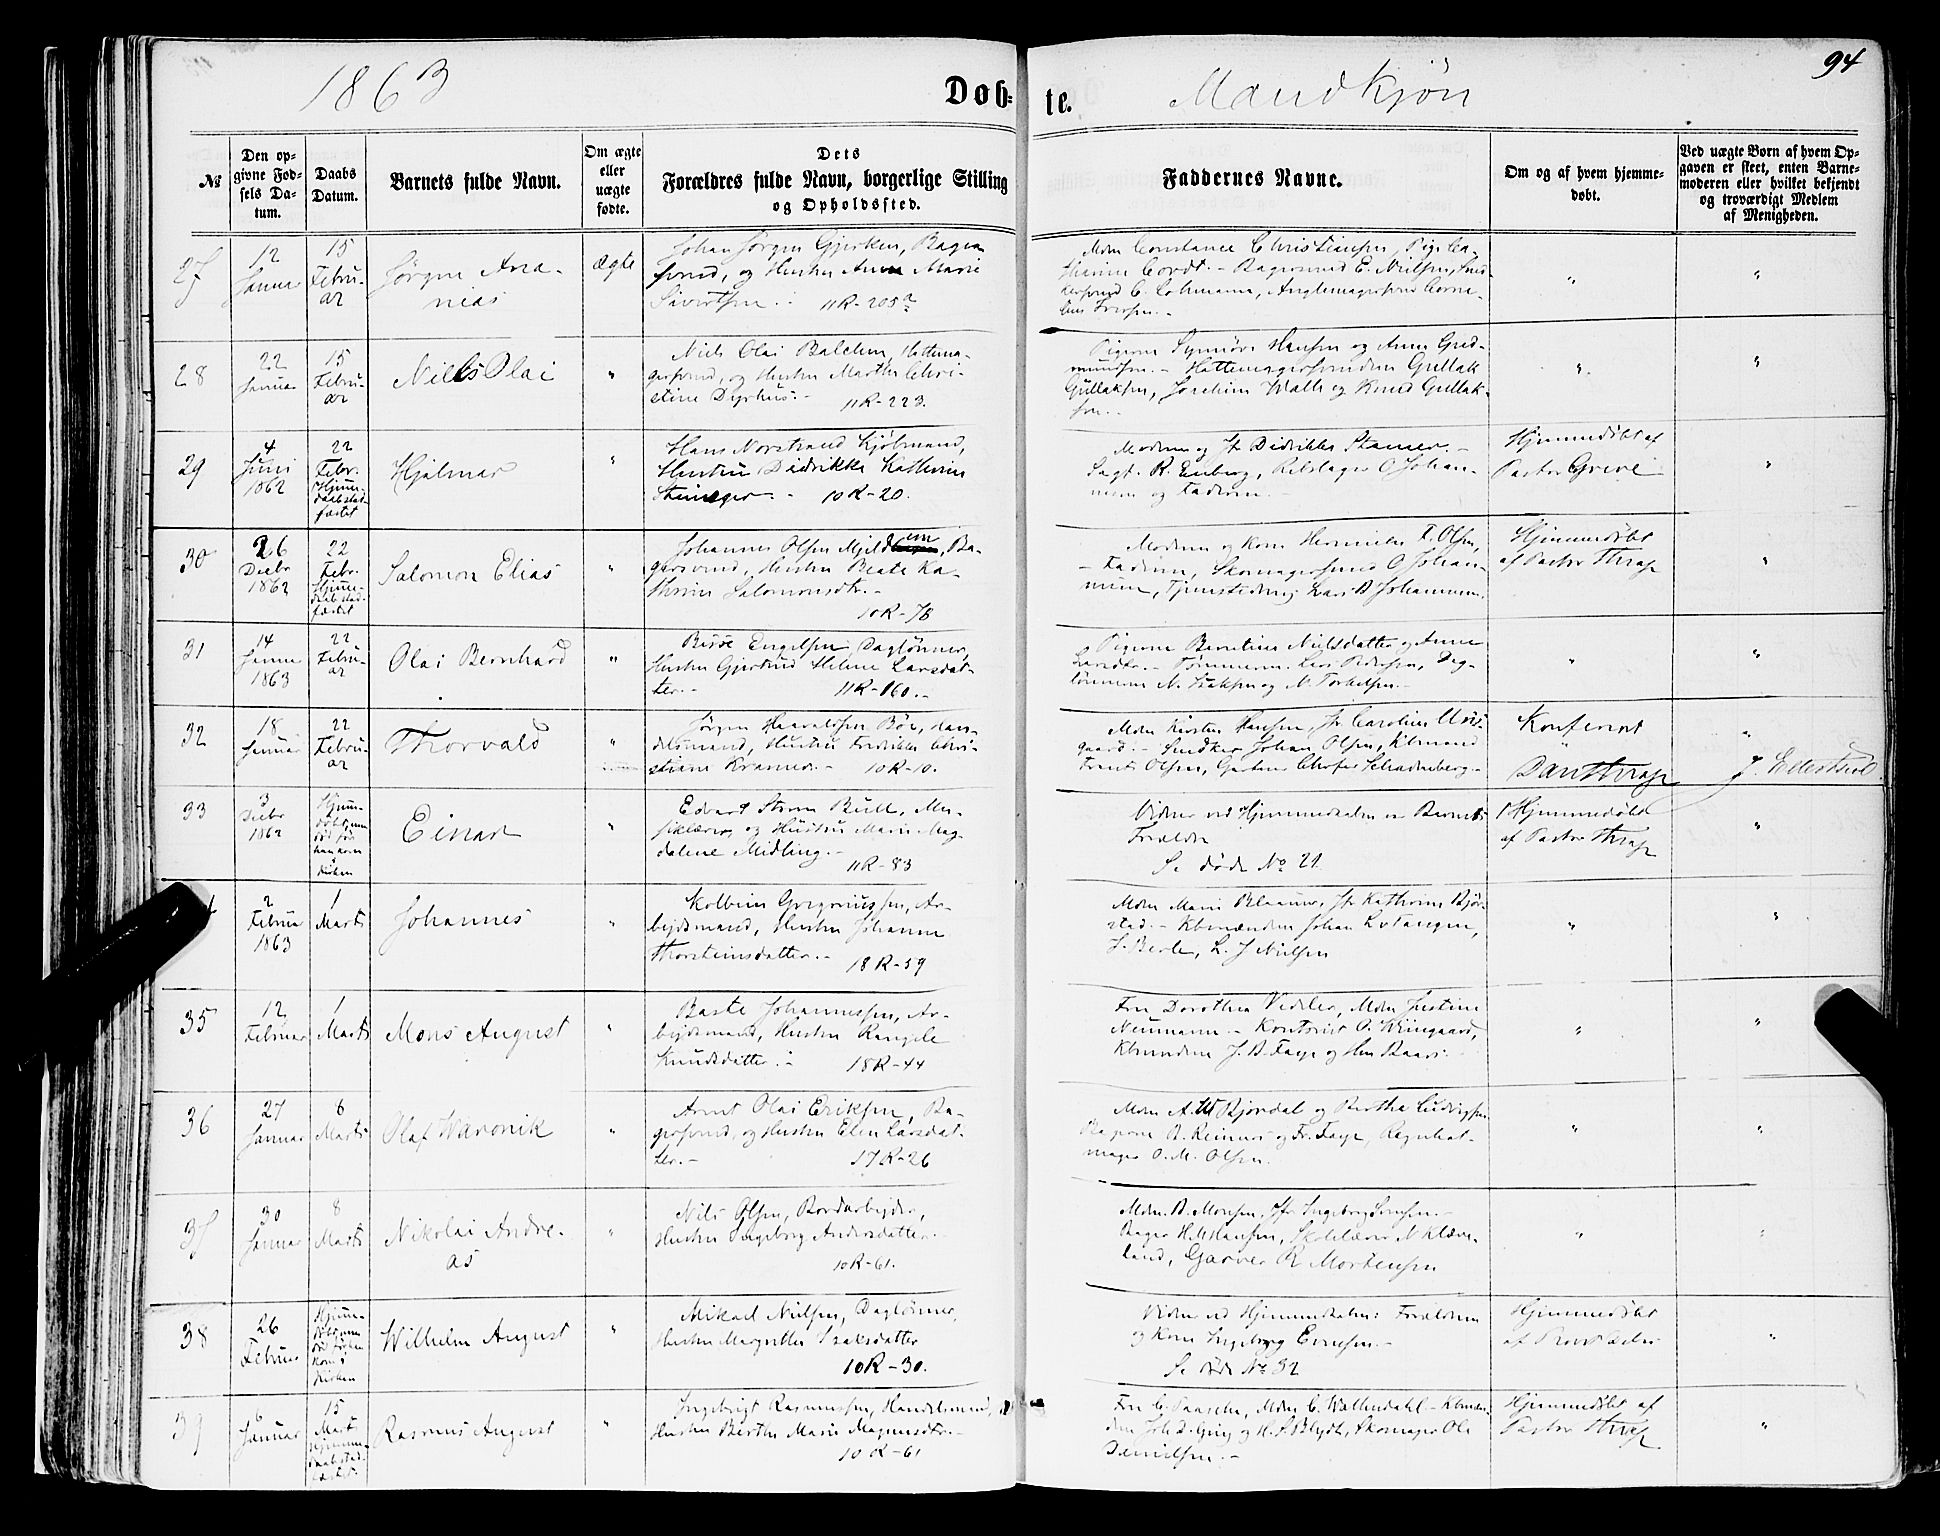 1863
Døb-
te.
Mandkjøn
94
№
Den op-
givne Fød-
sels Da-
tum.
Daabs
Datum.
Barnets fulde Navn.
Om ægte
eller
uægte
fødte.
Dets
Forældres fulde Navn, borgerlige Stilling
og Opholdssted.
Faddernes Navne.
Om og af hvem hjemme-
døbt.
Ved uægte Børn af hvem Op-
gaven er skeet, enten Barne-
moderen eller hvilket bekjendt
og troværdigt Medlem
af Menigheden.
27
12
Januar
15
Febru-
ar
Jørgen Ana-
nias
Ægte
Johan Jørgen Gjerken, Bager-
svend, og Hustru Anna Marie
Sivertsen.
11R-205a
Mdm Constance Christiansen, Pige Ca-
thrine Cordt. - Bagersvend E. Nielsen, Sned-
kersvend C. Lohmann,
28
22
Januar
15
Febru-
ar
Niels Olai
"
Niels Olai Balchen, Hattema-
gersvend, og Hustru Martha Chri-
stine Dyrhus. -
11R-223.
Pigerne Synnøve Hansen og Anna Gud-
mundsen. - Hattemagersvendene Gullak
Gullaksen, Joachim Wall og Knud Gullak-
sen. -
"
"
29
4
Juni
1862
22
Febr.
Hjemme-
daab stad-
fæstet
Hjalmar
"
Hans Norstrand Kjøbmand,
Hustru Didrikke Kathrine
10R-20.
Moderen og Jfr Didrikke
Sagf. R. Enberg, Rebslager O Johan-
nesen og Faderen. -
Hjemmedøbt af
Pastor Greve
"
30
26
Decbr
1862
22
Febr.
Hjemme-
daab stad-
fæstet
Salomon Elias
"
Johannes Olsen Ba-
gersvend, Hustru Beate Ka-
thrine Salomonsdtr. -
10R-78
Moderen og Kone Henriette F. Olsen,
- Faderen, Skomagersvend O Johan-
nesen, Tjenestedreng Lars B Johannesen.
Hjemmedøbt
af Pastor Thrap
"
31
14
Januar
1863
22
Febru-
ar
Olai Bernhard
"
Engelsen, Dagtønner,
Hustru Gjertrud Helene Larsdat-
ter. -
11R-160. -
Pigerne Berntine Nielsdatter og Anne
Larsdtr. - Tømmerm. Pedersen, Dag-
lønnerne N. Isaksen og N. Torkelsen. -
"
"
32
18
Januar
22
Febru-
ar
Thorvald
"
Jørgen Haavaldsen Bøe, Han-
delsmand, Hustru Fredrikke Chri-
stiane Kramer. -
10R-10.
Mdm Kirsten Hansen, Jfr Caroline
Snedker Johan Olsen, Kbmand
Olsen, Gartner
Konfereret
Dan Thrap
"
33
3
Decbr
1862
Einar
"
Edvard Storm Bull, Mu-
siklærer, og Hustru Marie Mag-
dalene Midling. -
11R-83
Vidner ved Hjemmedaaben var Barnets
Forældre
Se døde No 21
Hjemmedøbt
af Pastor Thrap
"
2
Februar
1863
1
Marts
Johannes
"
Kolbein Gregoriussen, Ar-
bejdsmand, Hustru Johanne
Thorsteinsdatter. -
18R-59
Mdm Marie Blaauw, Jfr Kathrine Bjør-
stad. - Kbmændene Johan
J. Berle, L. J Nielsen
"
"
35
12
Februar
1
Marts
Mons August
"
Baste Johannessen, Ar-
bejdsmand, Hustru Rangele
Knudsdatter. -
18R-44
Fru Dorothea Vedeler, Mdm Justine
Neumann. - Kontorist O. Wiingaard,
Kbmændene J. B. Faye og
"
"
36
27
Januar
8
Marts
Olaf Waronik
"
Arnt Olai Eriksen, Ba-
gersvend, og Hustru Elen Larsdat-
ter. -
17R-26
Mdm A. W Bjordal og Bertha Ludvigsen.
Bagerne B. Reimers og Fr. Faye,
mager O. M. Olsen.
"
"
37
30
Januar
8
Marts
Nikolai Andre-
as
"
Nils Olsen, Bordarbejder,
Hustru Ingeborg Andersdatter. -
10R-61.
Mdm. B. Monsen, Jfr. Ingeborg
Bager H. M Hansen, Skolelærer N Klæve-
land, Garver R Mortensen
"
"
38
26
Februar
Wilhelm August
"
Mikael Nielsen, Dagtønner,
Hustru Margrethe Isaksdatter
10R-30.
Vidner ved Hjemmedaaben: Forældrene
og Kone Ingeborg Evensen. -
Se døde No 32
Hjemmedøbt
af
"
39
6
Januar
15
Marts
Hjemme-
daab stad-
fæstet.
Rasmus August
"
Ingebrigt Rasmussen, Handelsmand,
Hustru Berthe Marie Magnusdtr. -
10R-61
Fru C. Paasche, Mdm C. Wallendahl - Kbmæn-
dene og H. S. Blydt, Skomager Ole
Danielsen. -
Hjemmedøbt af
Pastor Thrap
"